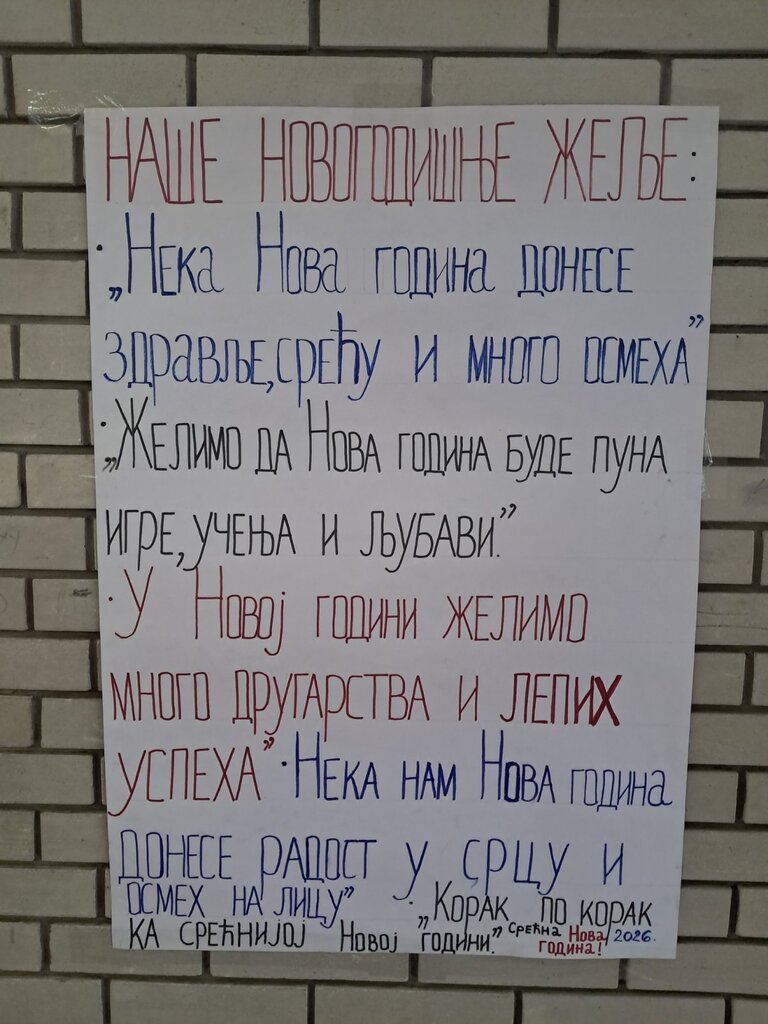 НАШЕ НОВОГОДИШЊЕ ЖЕЉЕ:
·„Нека Нова година донесе
здравље,срећу и много осмеха”
·„Желимо да Нова година буде пуна
игре,учења и љубави.”
·У Новој години желимо
много другарства и лепих
успеха” ·Нека нам Нова година
донесе радост у срцу и
осмех на лицу” ·„Корак по корак
ка срећнијој Новој години.” Срећна Нова 2026.
година!